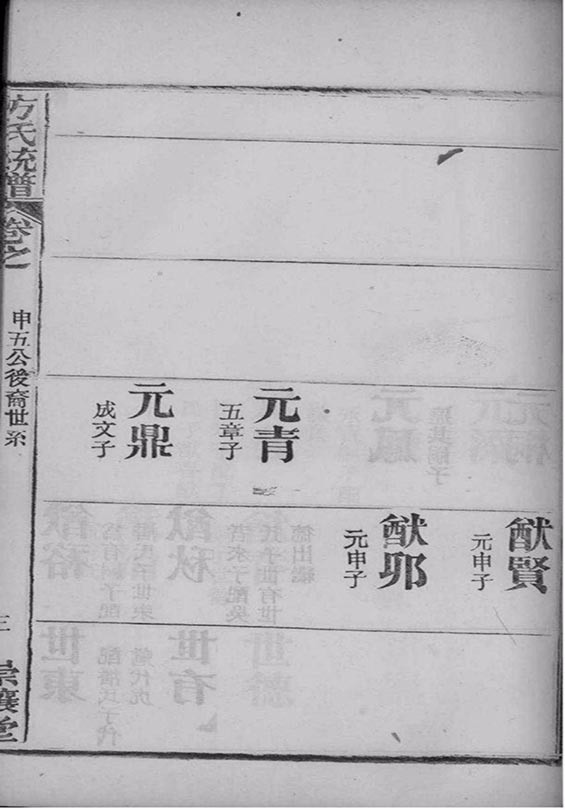 元青
五章子
元鼎
成文子
猷賢
元申子
猷卯
元申子
方氏統譜
卷之
申五公後裔世系
三